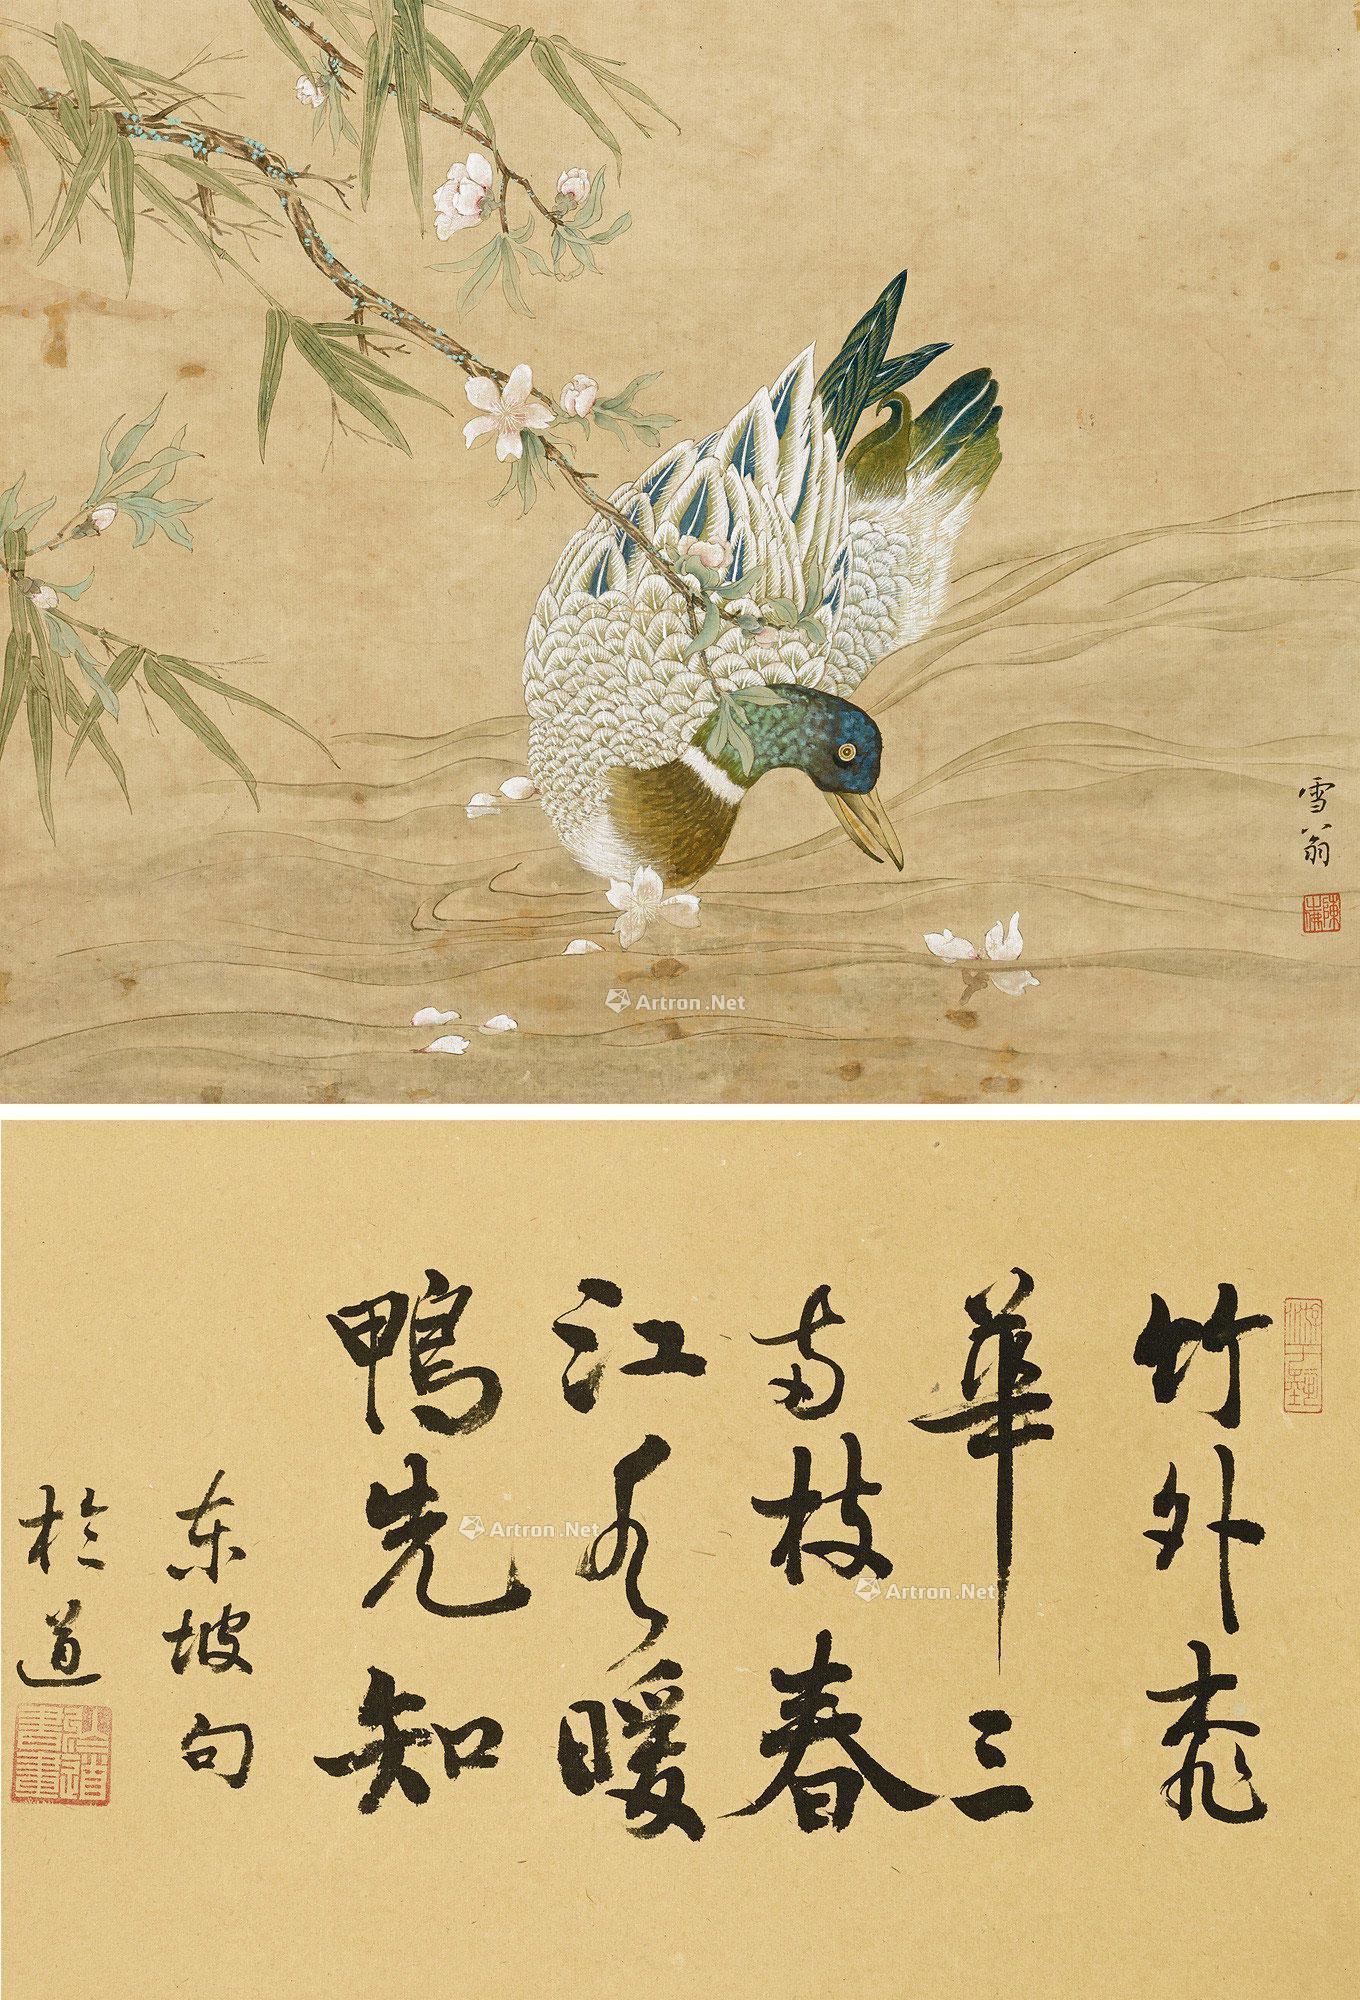 雪翁
陳嵓
Artron.Net
竹外桃
華三
两枝春
江水暖
鴨先知
东坡句
於道
Artron.Net
Artron.Net